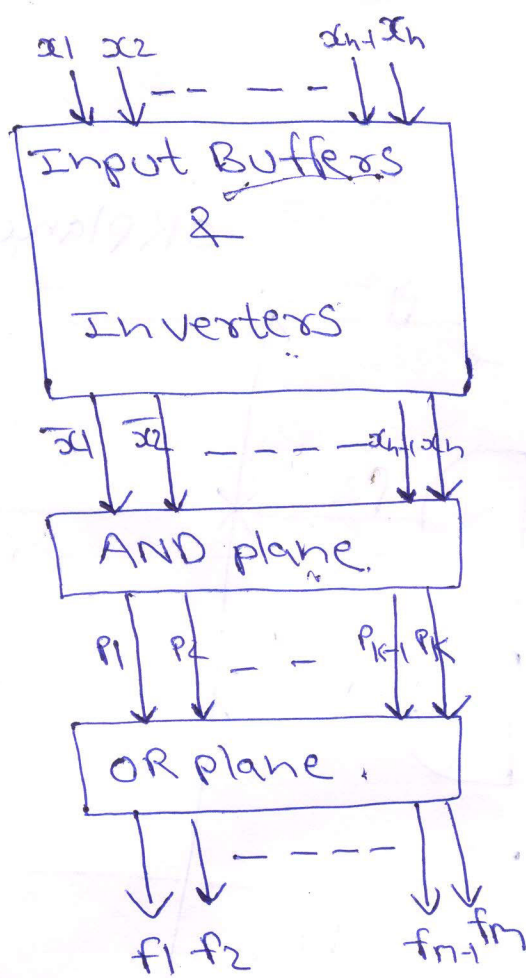 x1 x2 xn-1 xn
Input Buffers
&
Inverters
x̅1 x̅2 xn-1 xn
AND plane.
P1 P2 PK-1 PK
OR plane.
f1 f2 fm-1 fm